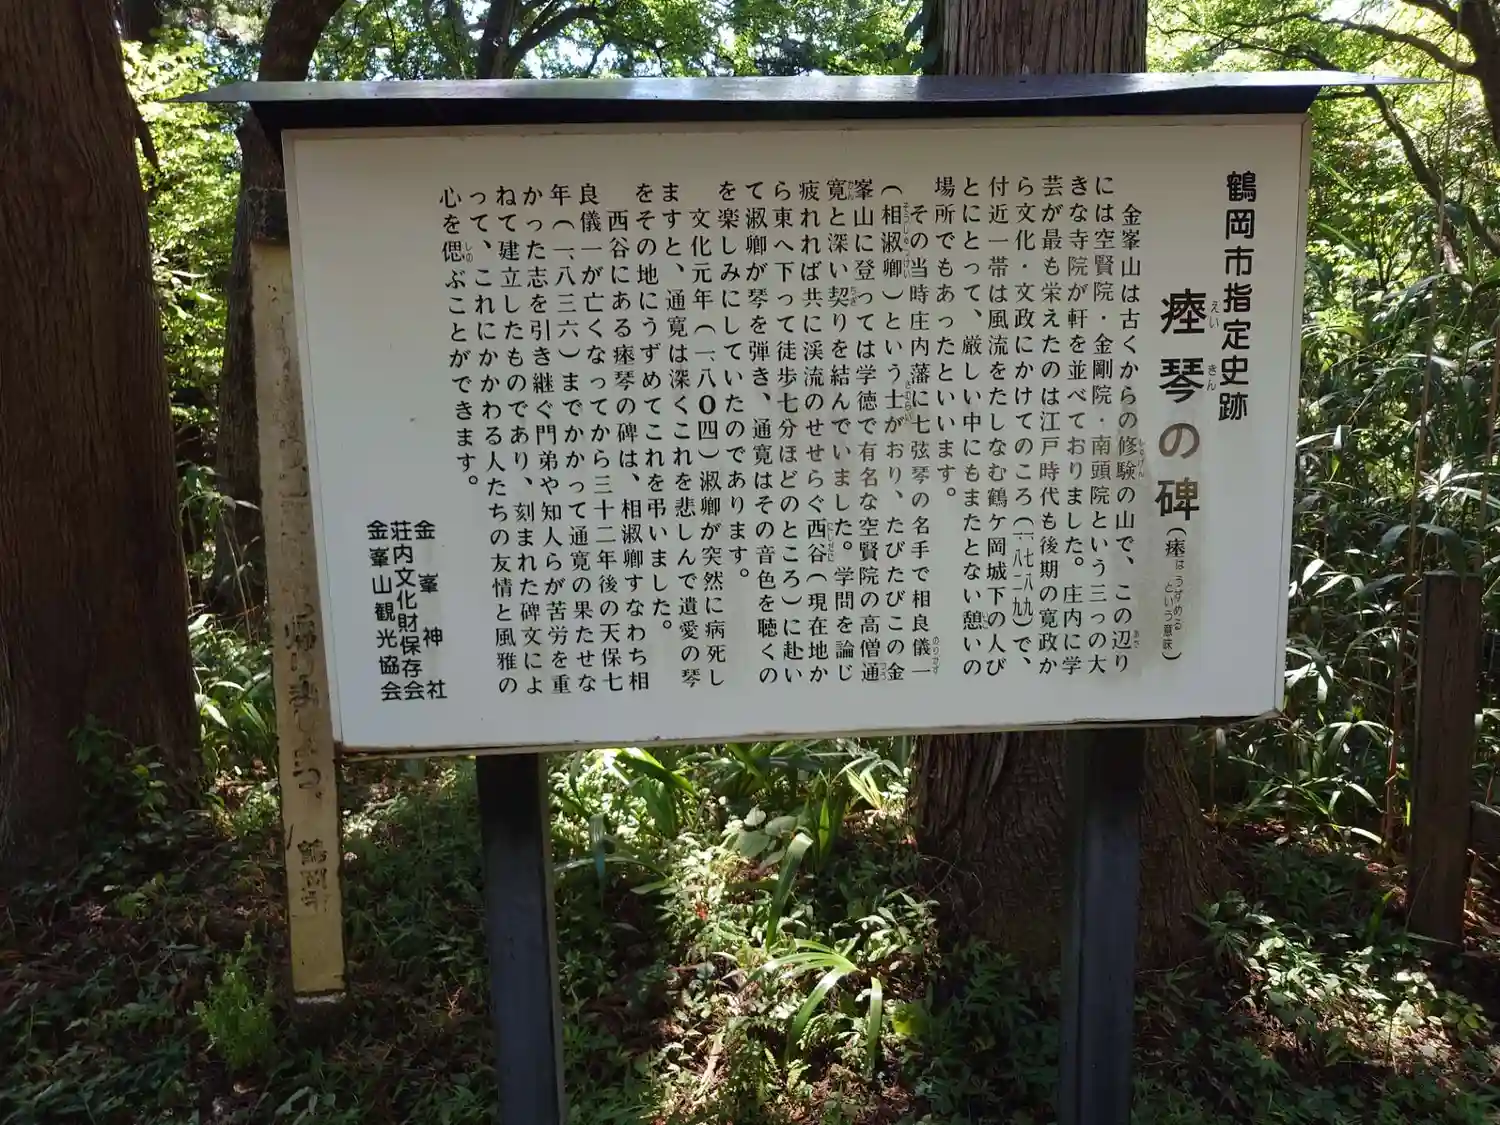 鶴岡市指定史跡
瘞琴の碑(瘞はうずめるという意味)
金峯山は古くからの修験の山で、この辺り
には空賢院・金剛院・南頭院という三つの大
きな寺院が軒を並べておりました。庄内に学
芸が最も栄えたのは江戸時代も後期の寛政か
ら文化・文政にかけてのころ(一七八九~一八二九)で、
付近一帯は風流をたしなむ鶴ヶ岡城下の人び
とにとって、厳しい中にもまたとない憩いの
場所でもあったといいます。
その当時庄内藩に七弦琴の名手で相良儀一
(相淑卿)という士がおり、たびたびこの金
峯山に登っては学徳で有名な空賢院の高僧通
寛と深い契りを結んでいました。学問を論じ
疲れれば共に渓流のせせらぐ西谷(現在地か
ら東へ下って徒歩七分ほどのところ)に赴い
て淑卿が琴を弾き、通寛はその音色を聴くの
を楽しみにしていたのであります。
文化元年(一八〇四)淑卿が突然に病死し
ますと、通寛は深くこれを悲しんで遺愛の琴
をその地にうずめてこれを弔いました。
西谷にある瘞琴の碑は、相淑卿すなわち相
良儀一が亡くなってから三十二年後の天保七
年(一八三六)までかかって通寛の果たせな
かった志を引き継ぐ門弟や知人らが苦労を重
ねて建立したものであり、刻まれた碑文によ
って、これにかかわる人たちの友情と風雅の
心を偲ぶことができます。
金峯神社
荘内文化財保存会
金峯山観光協会
鶴岡市